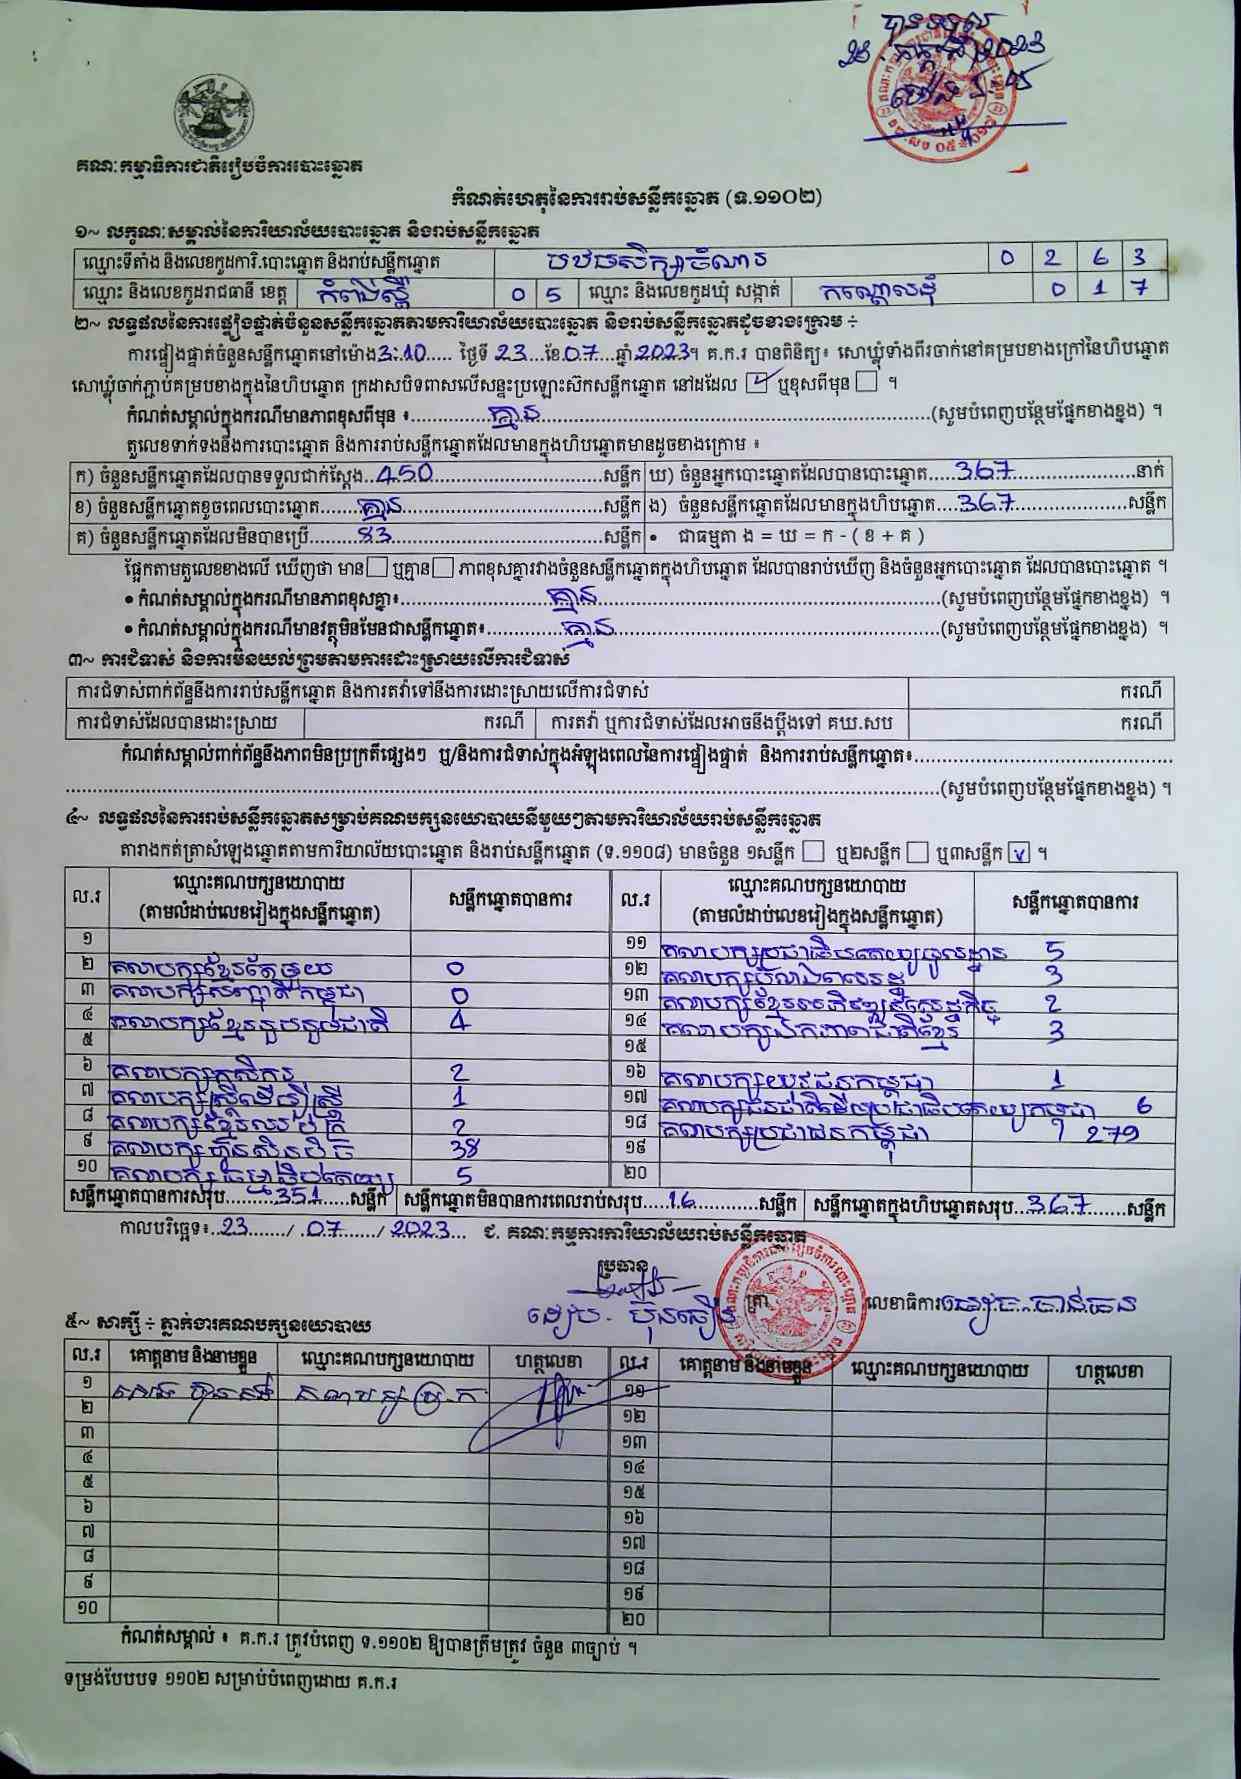 បានទទួល
គណៈកម្មាធិការជាតិរៀបចំការបោះឆ្នោត
កំណត់ហេតុនៃការរាប់សន្លឹកឆ្នោត (ទ.១១០២)
១~ លក្ខណៈសម្គាល់នៃការិយាល័យបោះឆ្នោត និងរាប់សន្លឹកឆ្នោត
ឈ្មោះទីតាំង និងលេខកូដការិ.បោះឆ្នោត និងរាប់សន្លឹកឆ្នោត បឋមសិក្សាចំណារ 0 2 6 3
ឈ្មោះ និងលេខកូដរាជធានី ខេត្ត កំពង់ស្ពឺ 0 5 ឈ្មោះ និងលេខកូដឃុំ សង្កាត់ កណ្ដោលដុំ 0 1 7
២~ លទ្ធផលនៃការផ្ទៀងផ្ទាត់ចំនួនសន្លឹកឆ្នោតតាមការិយាល័យបោះឆ្នោត និងរាប់សន្លឹកឆ្នោតដូចខាងក្រោម ÷
ការផ្ទៀងផ្ទាត់ចំនួនសន្លឹកឆ្នោតនៅម៉ោង 3:10 ថ្ងៃទី 23 ខែ 07 ឆ្នាំ 2023។ គ.ក.រ បានពិនិត្យ៖ សោឃ្លុំទាំងពីរចាក់នៅគម្របខាងក្រៅនៃហិបឆ្នោត
សោឃ្លុំចាក់ភ្ជាប់គម្របខាងក្នុងនៃហិបឆ្នោត ក្រដាសបិទពាសលើសន្ទះប្រឡោះស៊កសន្លឹកឆ្នោត នៅដដែល ☑ ឬខុសពីមុន ☐ ។
កំណត់សម្គាល់ក្នុងករណីមានភាពខុសពីមុន ៖ គ្មាន (សូមបំពេញបន្ថែមផ្នែកខាងខ្នង) ។
តួលេខទាក់ទងនឹងការបោះឆ្នោត និងការរាប់សន្លឹកឆ្នោតដែលមានក្នុងហិបឆ្នោតមានដូចខាងក្រោម ៖
ក) ចំនួនសន្លឹកឆ្នោតដែលបានទទួលជាក់ស្តែង 450 សន្លឹក ឃ) ចំនួនអ្នកបោះឆ្នោតដែលបានបោះឆ្នោត 367 នាក់
ខ) ចំនួនសន្លឹកឆ្នោតខូចពេលបោះឆ្នោត គ្មាន សន្លឹក ង) ចំនួនសន្លឹកឆ្នោតដែលមានក្នុងហិបឆ្នោត 367 សន្លឹក
គ) ចំនួនសន្លឹកឆ្នោតដែលមិនបានប្រើ 83 សន្លឹក • ជាធម្មតា ង = ឃ = ក - ( ខ + គ )
ផ្អែកតាមតួលេខខាងលើ ឃើញថា មាន ☐ ឬគ្មាន ☐ ភាពខុសគ្នារវាងចំនួនសន្លឹកឆ្នោតក្នុងហិបឆ្នោត ដែលបានរាប់ឃើញ និងចំនួនអ្នកបោះឆ្នោត ដែលបានបោះឆ្នោត ។
• កំណត់សម្គាល់ក្នុងករណីមានភាពខុសគ្នា៖ គ្មាន (សូមបំពេញបន្ថែមផ្នែកខាងខ្នង) ។
• កំណត់សម្គាល់ក្នុងករណីមានវត្ថុមិនមែនជាសន្លឹកឆ្នោត៖ គ្មាន (សូមបំពេញបន្ថែមផ្នែកខាងខ្នង) ។
៣~ ការជំទាស់ និងការមិនយល់ព្រមតាមការដោះស្រាយលើការជំទាស់
ការជំទាស់ពាក់ព័ន្ធនឹងការរាប់សន្លឹកឆ្នោត និងការតវ៉ាទៅនឹងការដោះស្រាយលើការជំទាស់ ករណី
ការជំទាស់ដែលបានដោះស្រាយ ករណី ការតវ៉ា ឬការជំទាស់ដែលអាចនឹងប្តឹងទៅ គឃ.សប ករណី
កំណត់សម្គាល់ពាក់ព័ន្ធនឹងភាពមិនប្រក្រតីផ្សេងៗ ឬ/និងការជំទាស់ក្នុងអំឡុងពេលនៃការផ្ទៀងផ្ទាត់ និងការរាប់សន្លឹកឆ្នោត៖
(សូមបំពេញបន្ថែមផ្នែកខាងខ្នង) ។
៤~ លទ្ធផលនៃការរាប់សន្លឹកឆ្នោតសម្រាប់គណបក្សនយោបាយនីមួយៗតាមការិយាល័យរាប់សន្លឹកឆ្នោត
តារាងកត់ត្រាសំឡេងឆ្នោតតាមការិយាល័យបោះឆ្នោត និងរាប់សន្លឹកឆ្នោត (ទ.១១០៨) មានចំនួន ១សន្លឹក ☐ ឬ២សន្លឹក ☐ ឬ៣សន្លឹក ☑ ។
ល.រ ឈ្មោះគណបក្សនយោបាយ (តាមលំដាប់លេខរៀងក្នុងសន្លឹកឆ្នោត) សន្លឹកឆ្នោតបានការ ល.រ ឈ្មោះគណបក្សនយោបាយ (តាមលំដាប់លេខរៀងក្នុងសន្លឹកឆ្នោត) សន្លឹកឆ្នោតបានការ
១ ១១ គណបក្សប្រជាធិបតេយ្យមូលដ្ឋាន 5
២ គណបក្សខ្មែរតែមួយ 0 ១២ 3
៣ គណបក្សសញ្ជាតិកម្ពុជា 0 ១៣ គណបក្សខ្មែរអភិវឌ្ឍន៍សេដ្ឋកិច្ច 2
៤ គណបក្សខ្មែររួបរួមជាតិ 4 ១៤ គណបក្សឯកភាពជាតិខ្មែរ 3
៥ ១៥
៦ គណបក្សកសិករ 2 ១៦ គណបក្សយុវជនកម្ពុជា 1
៧ គណបក្សស្ត្រីដើម្បីស្ត្រី 1 ១៧ គណបក្សជនជាតិដើមប្រជាធិបតេយ្យកម្ពុជា 6
៨ គណបក្សខ្មែរឈប់ក្រ 2 ១៨ គណបក្សប្រជាជនកម្ពុជា 279
៩ គណបក្សហ៊្វុនស៊ិនប៉ិច 38 ១៩
១០ គណបក្សធម្មាធិបតេយ្យ 5 ២០
សន្លឹកឆ្នោតបានការសរុប 351 សន្លឹក សន្លឹកឆ្នោតមិនបានការពេលរាប់សរុប 16 សន្លឹក សន្លឹកឆ្នោតក្នុងហិបឆ្នោតសរុប 367 សន្លឹក
កាលបរិច្ឆេទ៖ 23 / 07 / 2023 ជ. គណៈកម្មការការិយាល័យរាប់សន្លឹកឆ្នោត
ប្រធាន
ត្រា លេខាធិការ
៥~ សាក្សី ÷ ភ្នាក់ងារគណបក្សនយោបាយ
ល.រ គោត្តនាម និងនាមខ្លួន ឈ្មោះគណបក្សនយោបាយ ហត្ថលេខា ល.រ គោត្តនាម និងនាមខ្លួន ឈ្មោះគណបក្សនយោបាយ ហត្ថលេខា
១ គណបក្ស ប្រ.ក ១១
២ ១២
៣ ១៣
៤ ១៤
៥ ១៥
៦ ១៦
៧ ១៧
៨ ១៨
៩ ១៩
១០ ២០
កំណត់សម្គាល់ ៖ គ.ក.រ ត្រូវបំពេញ ទ.១១០២ ឱ្យបានត្រឹមត្រូវ ចំនួន ៣ច្បាប់ ។
ទម្រង់បែបបទ ១១០២ សម្រាប់បំពេញដោយ គ.ក.រ